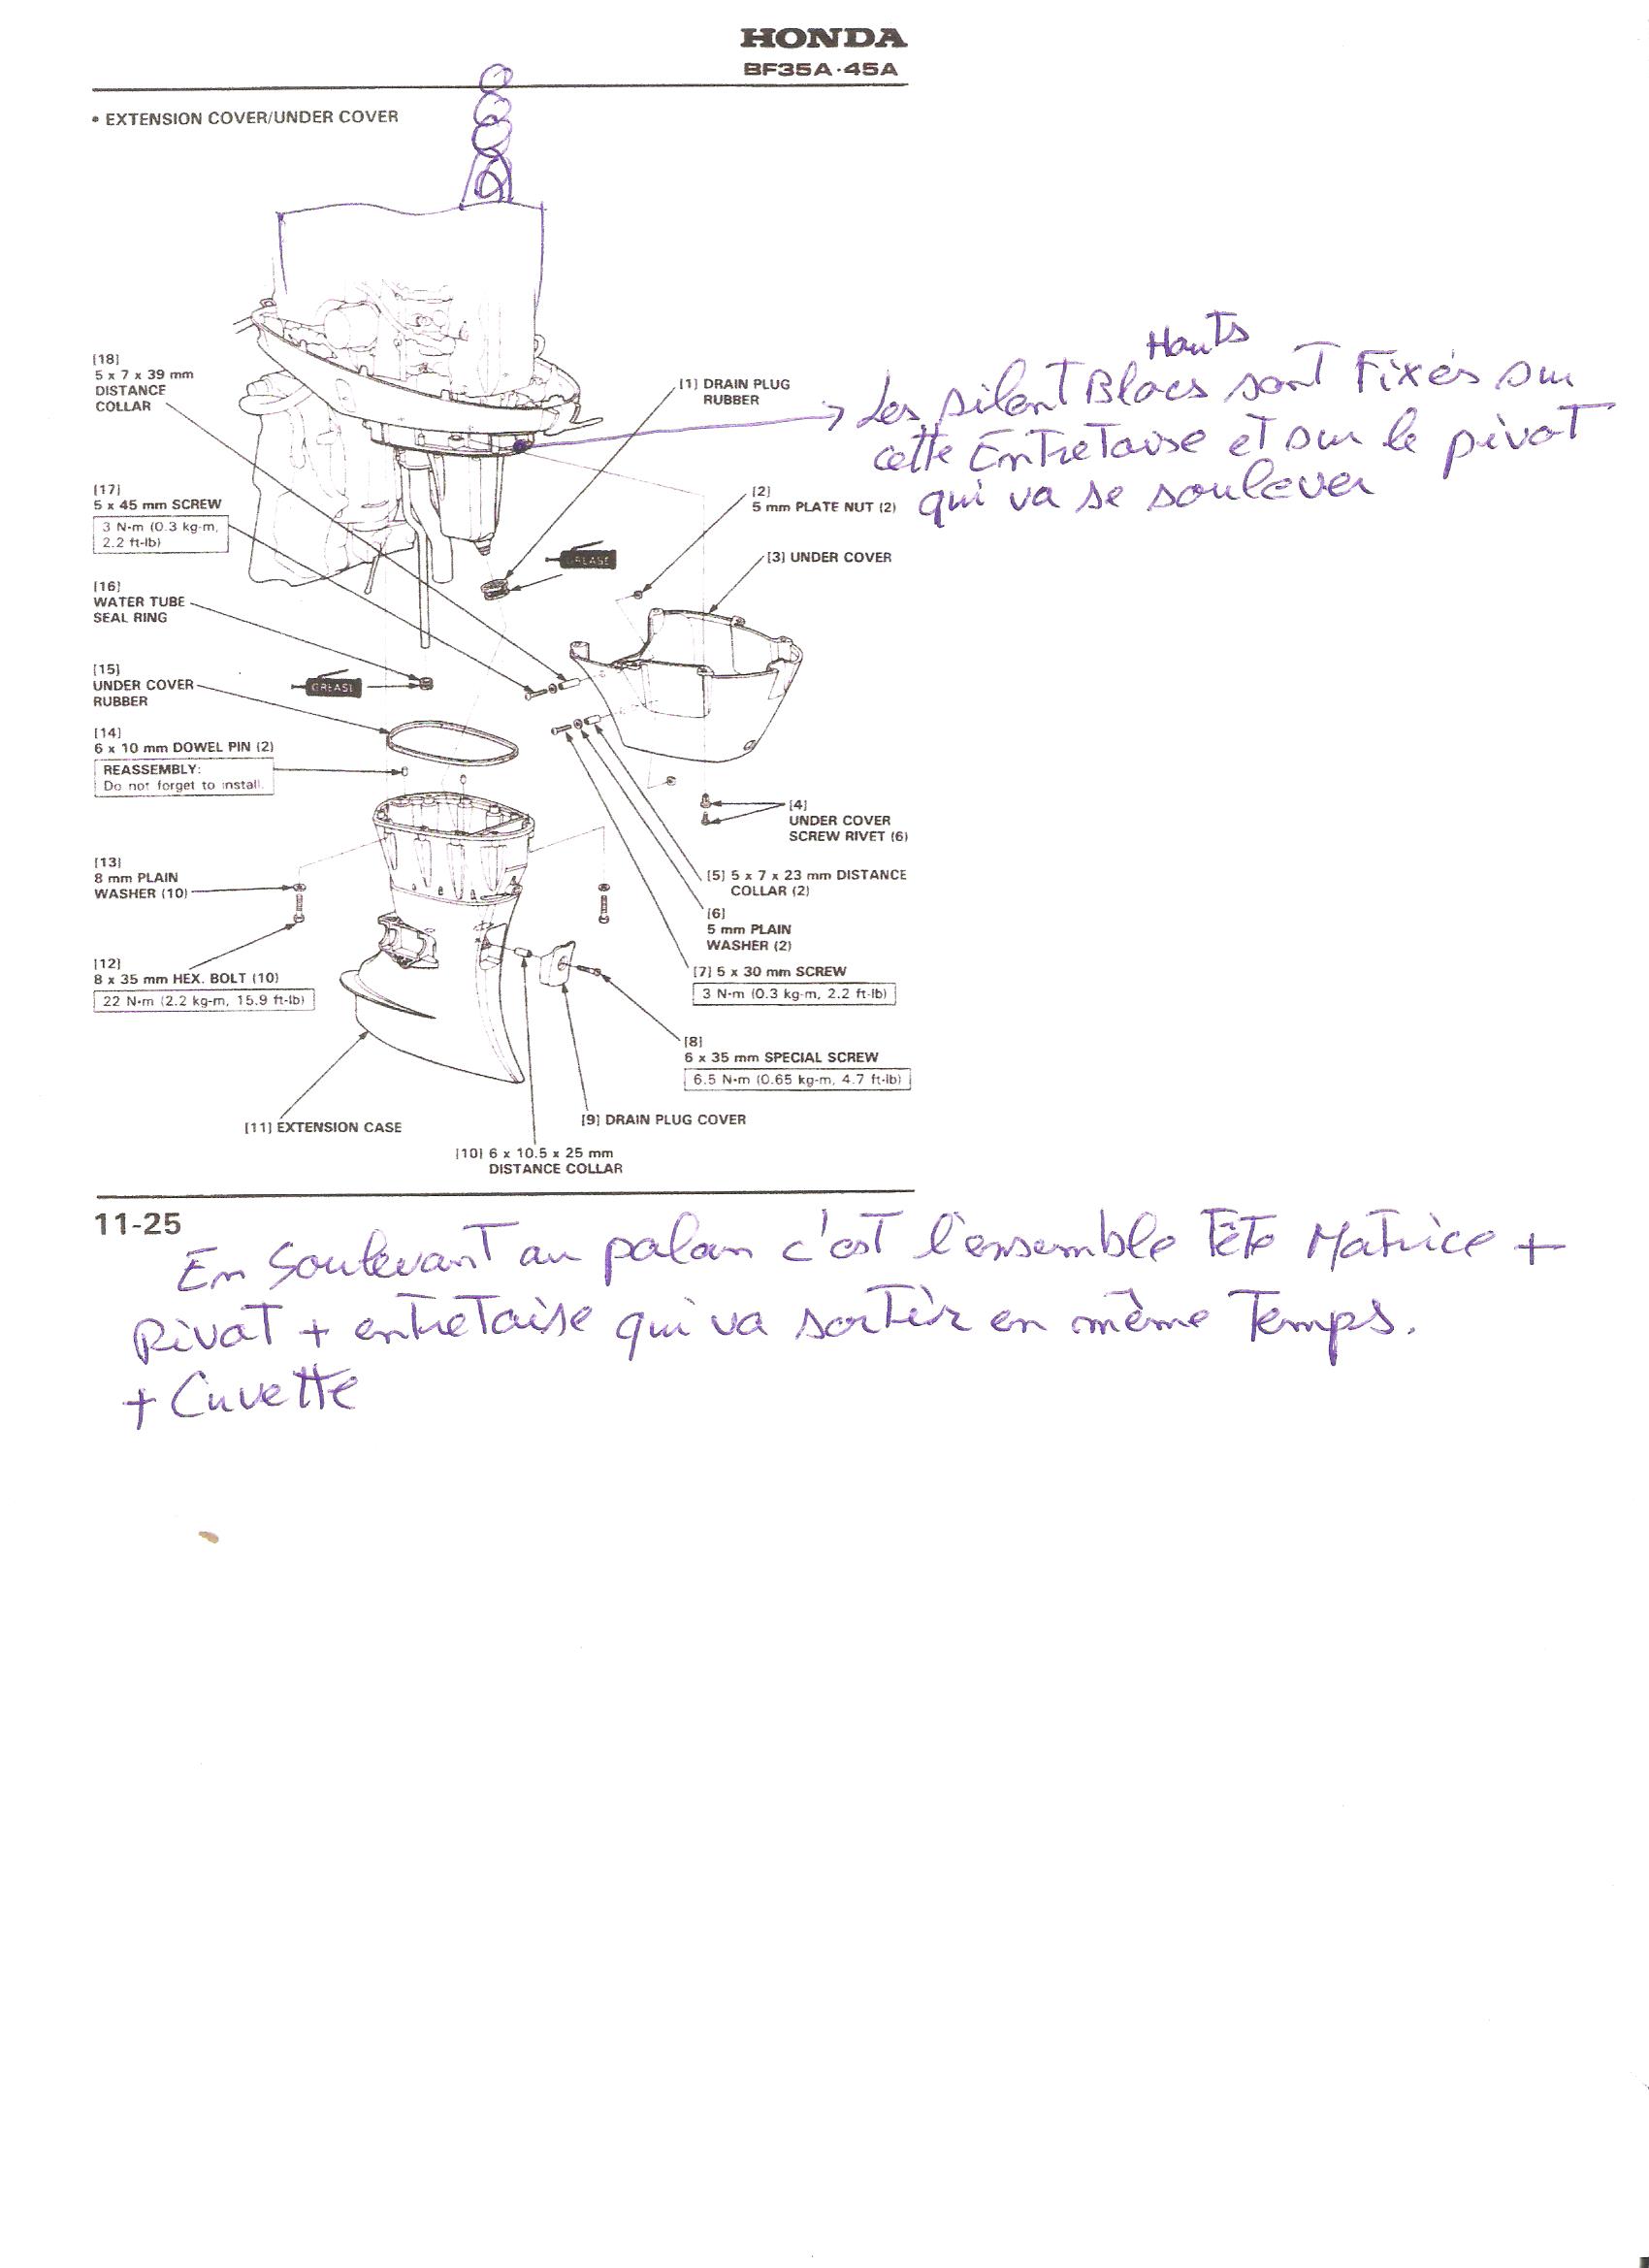 HONDA
BF35A·45A
• EXTENSION COVER/UNDER COVER
[18]
5 x 7 x 39 mm
DISTANCE
COLLAR
[1] DRAIN PLUG
RUBBER
Hauts
Les silent Blocs sont Fixés sur
cette Entretoise et sur le pivot
qui va se soulever
[17]
5 x 45 mm SCREW
3 N·m (0.3 kg-m,
2.2 ft-lb)
[2]
5 mm PLATE NUT (2)
GREASE
[3] UNDER COVER
[16]
WATER TUBE
SEAL RING
[15]
UNDER COVER
RUBBER
GREASE
[14]
6 x 10 mm DOWEL PIN (2)
REASSEMBLY:
Do not forget to install.
[4]
UNDER COVER
SCREW RIVET (6)
[13]
8 mm PLAIN
WASHER (10)
[5] 5 x 7 x 23 mm DISTANCE
COLLAR (2)
[6]
5 mm PLAIN
WASHER (2)
[12]
8 x 35 mm HEX. BOLT (10)
22 N·m (2.2 kg-m, 15.9 ft-lb)
[7] 5 x 30 mm SCREW
3 N·m (0.3 kg-m, 2.2 ft-lb)
[8]
6 x 35 mm SPECIAL SCREW
6.5 N·m (0.65 kg-m, 4.7 ft-lb)
[9] DRAIN PLUG COVER
[11] EXTENSION CASE
[10] 6 x 10.5 x 25 mm
DISTANCE COLLAR
11-25
En Soulevant au palan c'est l'ensemble Tête Motrice +
Pivot + entretoise qui va sortir en même Temps.
+ Cuvette